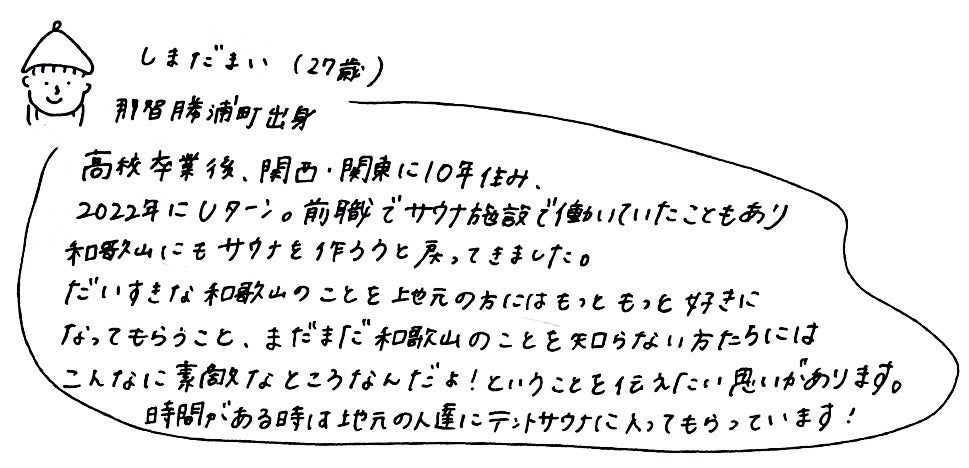 しまだまい（27歳）
那智勝浦町出身
高校卒業後、関西・関東に10年住み、
2022年にUターン。前職でサウナ施設で働いていたこともあり
和歌山にもサウナを作ろうと戻ってきました。
だいすきな和歌山のことを地元の方にはもっともっと好きに
なってもらうこと、まだまだ和歌山のことを知らない方たちには
こんなに素敵なところなんだよ！ということを伝えたい思いがあります。
時間がある時は地元の人達にテントサウナに入ってもらっています！